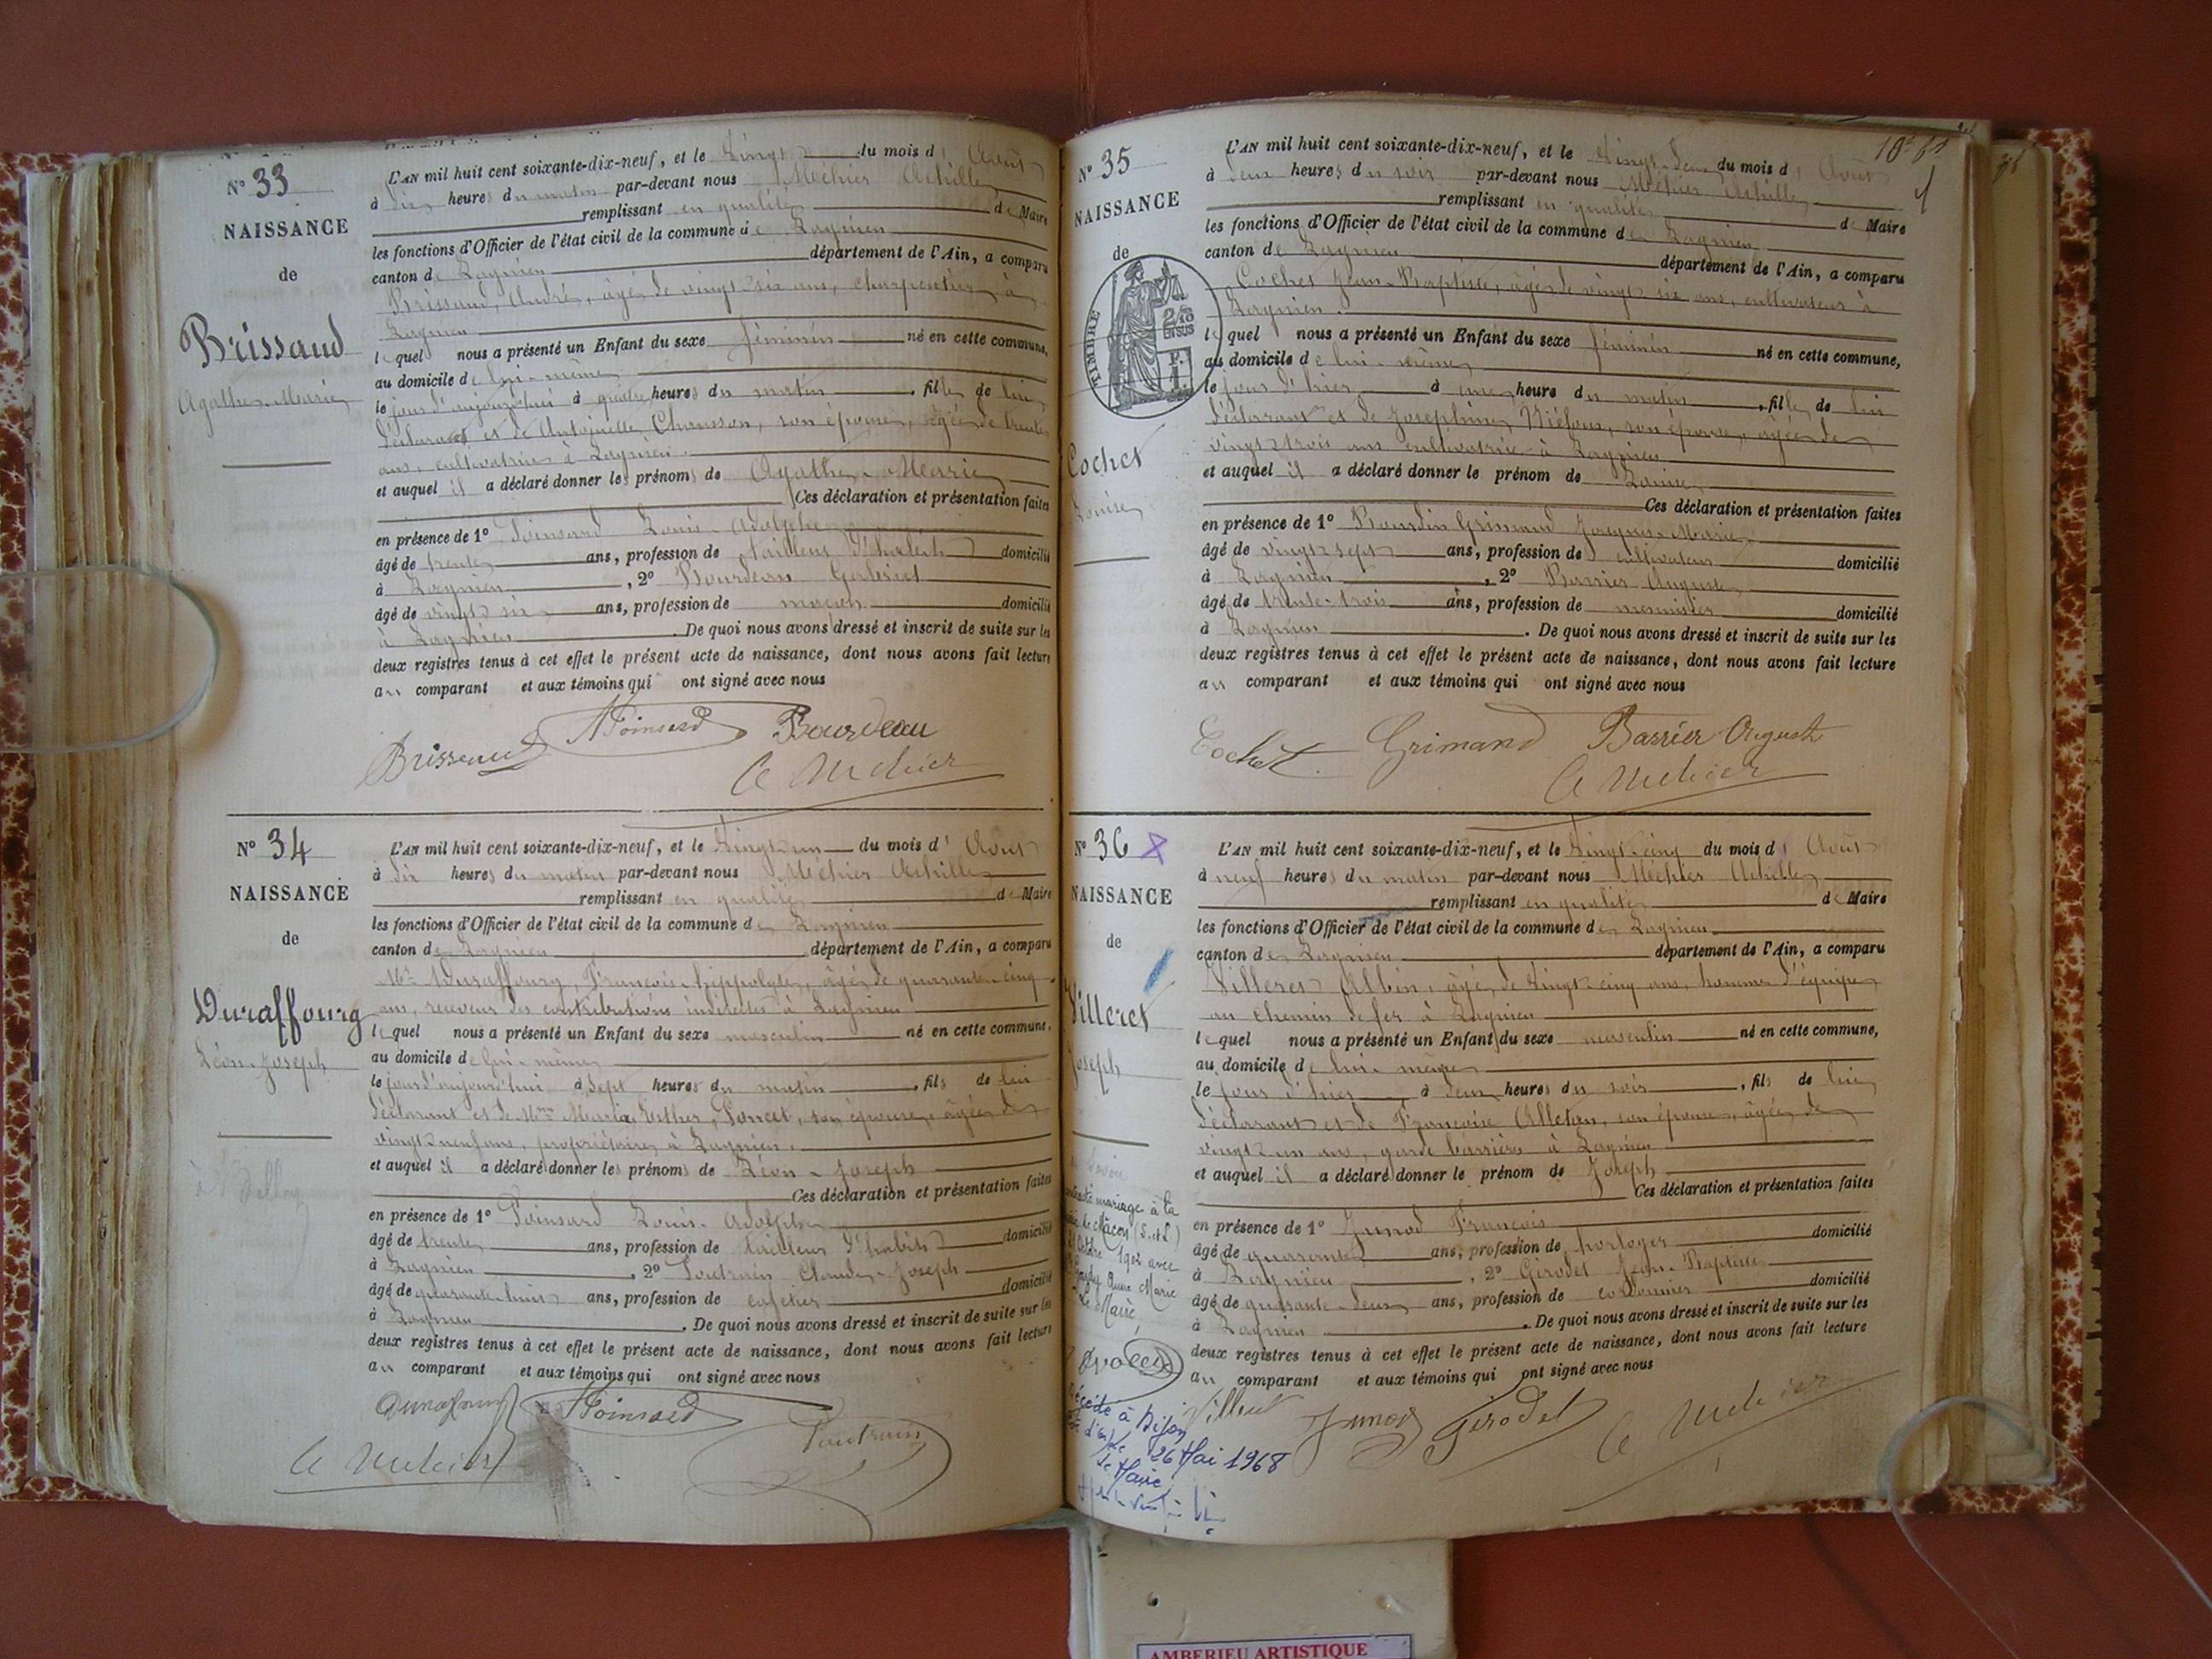 N° 33
NAISSANCE
de
Brissaud
Agathe-Marie
L'AN mil huit cent soixante-dix-neuf, et le Vingt du mois d' Août
à dix heures du matin par-devant nous Méhier Achille
remplissant en qualité de Maire
les fonctions d'Officier de l'état civil de la commune de Lagnieu
canton de Lagnieu département de l'Ain, a comparu
Brissaud, André, âgé de vingt six ans, charpentier à
Lagnieu
lequel nous a présenté un Enfant du sexe féminin né en cette commune,
au domicile de lui-même
le jour d'aujourd'hui à quatre heures du matin, fille de lui
déclarant et de Antoinette Chausson, son épouse, âgée de trente
ans, cultivatrice à Lagnieu.
et auquel il a déclaré donner les prénoms de Agathe-Marie
Ces déclaration et présentation faites
en présence de 1° Poinsard Louis-Adolphe
âgé de trente ans, profession de tailleur d'habits domicilié
à Lagnieu, 2° Bourdeau Gabriel
âgé de vingt six ans, profession de maçon domicilié
à Lagnieu. De quoi nous avons dressé et inscrit de suite sur les
deux registres tenus à cet effet le présent acte de naissance, dont nous avons fait lecture
au comparant et aux témoins qui ont signé avec nous
Brissaud Poinsard Bourdeau
A Méhier
N° 34
NAISSANCE
de
Duraffourg
Léon-Joseph
L'AN mil huit cent soixante-dix-neuf, et le Vingt un du mois d' Août
à dix heures du matin par-devant nous Méhier Achille
remplissant en qualité de Maire
les fonctions d'Officier de l'état civil de la commune de Lagnieu
canton de Lagnieu département de l'Ain, a comparu
Mr Duraffourg, François-hippolyte, âgé de quarante-cinq
ans, receveur des contributions indirectes à Lagnieu
lequel nous a présenté un Enfant du sexe masculin né en cette commune,
au domicile de lui-même
le jour d'aujourd'hui à sept heures du matin, fils de lui
déclarant et de Mme Maria Esther Poncet, son épouse, âgée de
vingt neuf ans, propriétaire à Lagnieu.
et auquel il a déclaré donner les prénoms de Léon-Joseph
Ces déclaration et présentation faites
en présence de 1° Poinsard Louis-Adolphe
âgé de trente ans, profession de tailleur d'habits domicilié
à Lagnieu, 2° Poutrain Claude-Joseph
âgé de quarante-huit ans, profession de cafetier domicilié
à Lagnieu. De quoi nous avons dressé et inscrit de suite sur les
deux registres tenus à cet effet le présent acte de naissance, dont nous avons fait lecture
au comparant et aux témoins qui ont signé avec nous
Duraffourg Poinsard Poutrain
A Méhier
N° 35
NAISSANCE
de
TIMBRE
Cochet
Louise
L'AN mil huit cent soixante-dix-neuf, et le Vingt-Deux du mois d' Août
à deux heures du soir par-devant nous Méhier Achille
remplissant en qualité de Maire
les fonctions d'Officier de l'état civil de la commune de Lagnieu
canton de Lagnieu département de l'Ain, a comparu
Cochet Jean-Baptiste, âgé de vingt six ans, cultivateur à
Lagnieu.
lequel nous a présenté un Enfant du sexe féminin né en cette commune,
au domicile de lui-même
le jour d'hier à une heure du matin, fille de lui
déclarant et de Josephine, son épouse, âgée de
vingt trois ans cultivatrice à Lagnieu
et auquel il a déclaré donner le prénom de Louise
Ces déclaration et présentation faites
en présence de 1° Bourdin Grimand Jacques-Marie
âgé de vingt sept ans, profession de cultivateur domicilié
à Lagnieu, 2° Barrier Auguste
âgé de trente-trois ans, profession de menuisier domicilié
à Lagnieu. De quoi nous avons dressé et inscrit de suite sur les
deux registres tenus à cet effet le présent acte de naissance, dont nous avons fait lecture
au comparant et aux témoins qui ont signé avec nous
Cochet Grimand Barrier Auguste
A Méhier
N° 36
NAISSANCE
de
Villeret
Joseph
mariage à la
de Mâcon (S. et L.)
1902 avec
Anne Marie
Le Maire,
Décédé à Dijon
26 Mai 1968
Le Maire
L'AN mil huit cent soixante-dix-neuf, et le Vingt-cinq du mois d' Août
à neuf heures du matin par-devant nous Méhier Achille
remplissant en qualité de Maire
les fonctions d'Officier de l'état civil de la commune de Lagnieu
canton de Lagnieu département de l'Ain, a comparu
Villeret Albin, âgé de Vingt cinq ans, homme d'équipe
au chemin de fer à Lagnieu
lequel nous a présenté un Enfant du sexe masculin né en cette commune,
au domicile de lui-même
le jour d'hier à deux heures du soir, fils de lui
déclarant et de Françoise Alletan, son épouse, âgée de
vingt un ans, garde barrière à Lagnieu
et auquel il a déclaré donner le prénom de Joseph
Ces déclaration et présentation faites
en présence de 1° Junod François
âgé de quarante ans, profession de horloger domicilié
à Lagnieu, 2° Girodet Jean-Baptiste
âgé de quarante-deux ans, profession de cordonnier domicilié
à Lagnieu. De quoi nous avons dressé et inscrit de suite sur les
deux registres tenus à cet effet le présent acte de naissance, dont nous avons fait lecture
au comparant et aux témoins qui ont signé avec nous
Villeret Junod Girodet A Méhier
AMBERIEU ARTISTIQUE